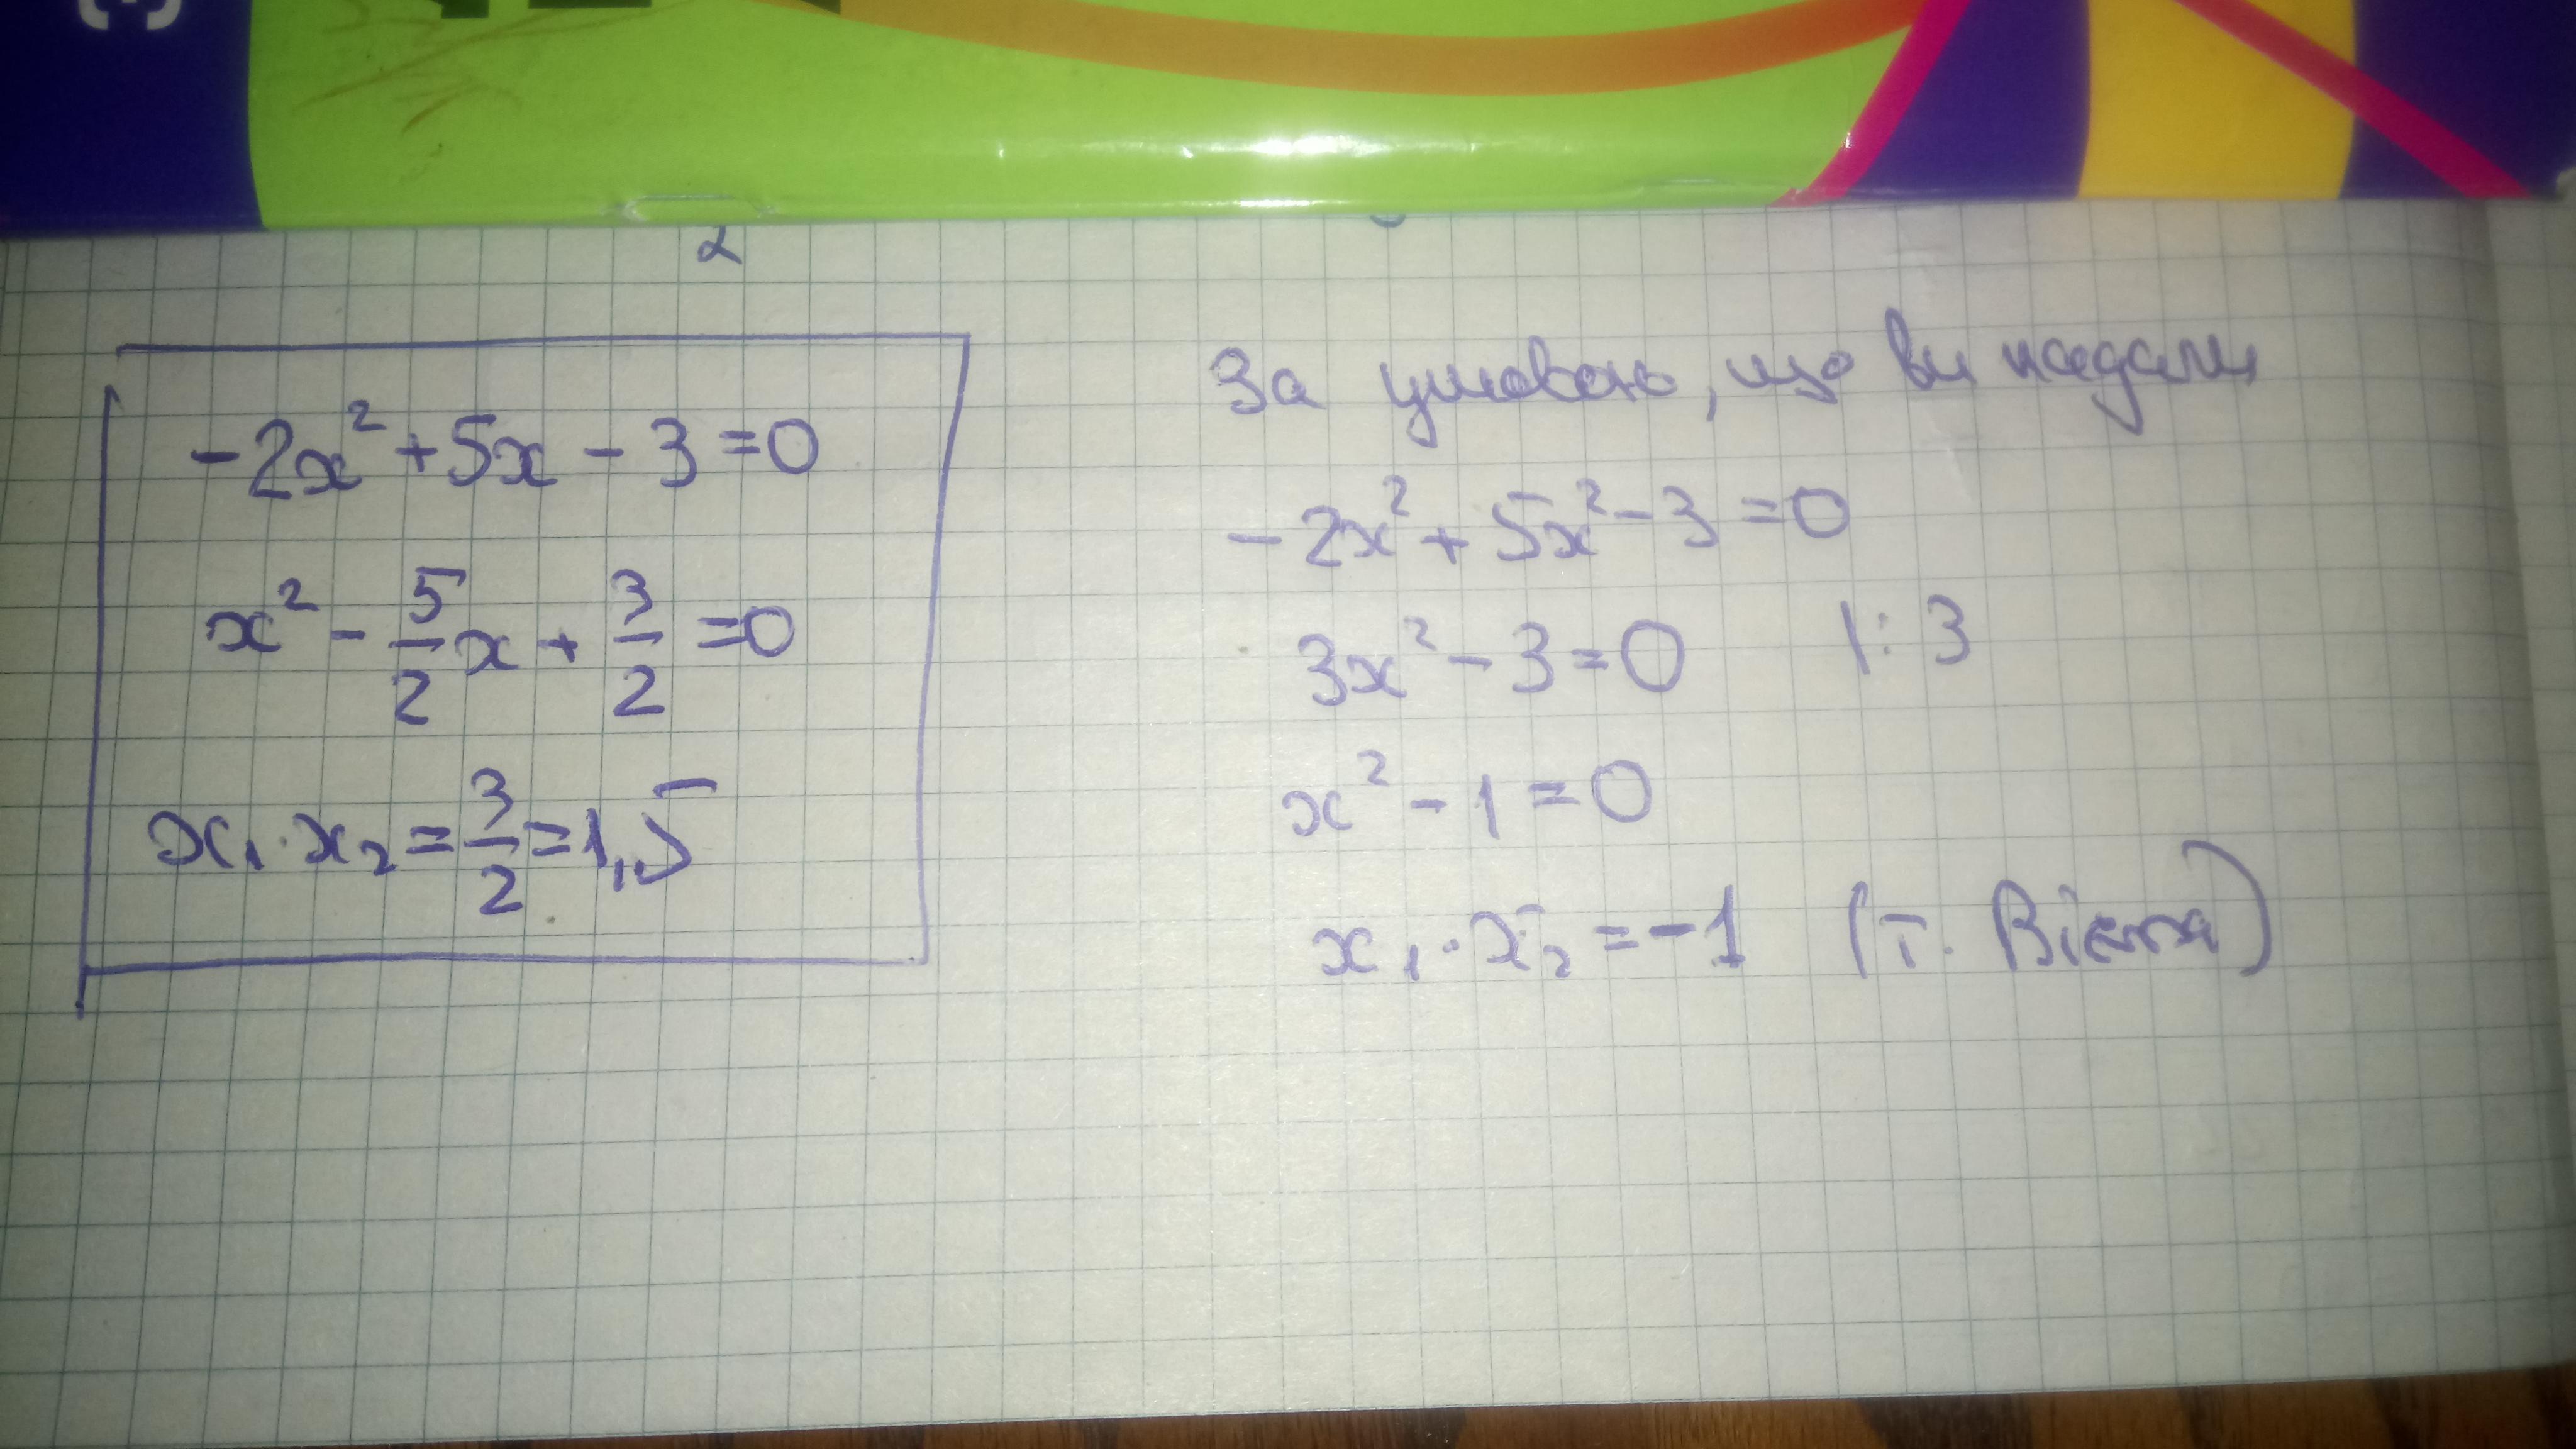 2
-2x² + 5x - 3 = 0
x² - 5/2 x + 3/2 = 0
x₁ · x₂ = 3/2 = 1,5
За умовою, що ви надали
-2x² + 5x² - 3 = 0
3x² - 3 = 0 |: 3
x² - 1 = 0
x₁ · x₂ = -1 (т. Вієта)